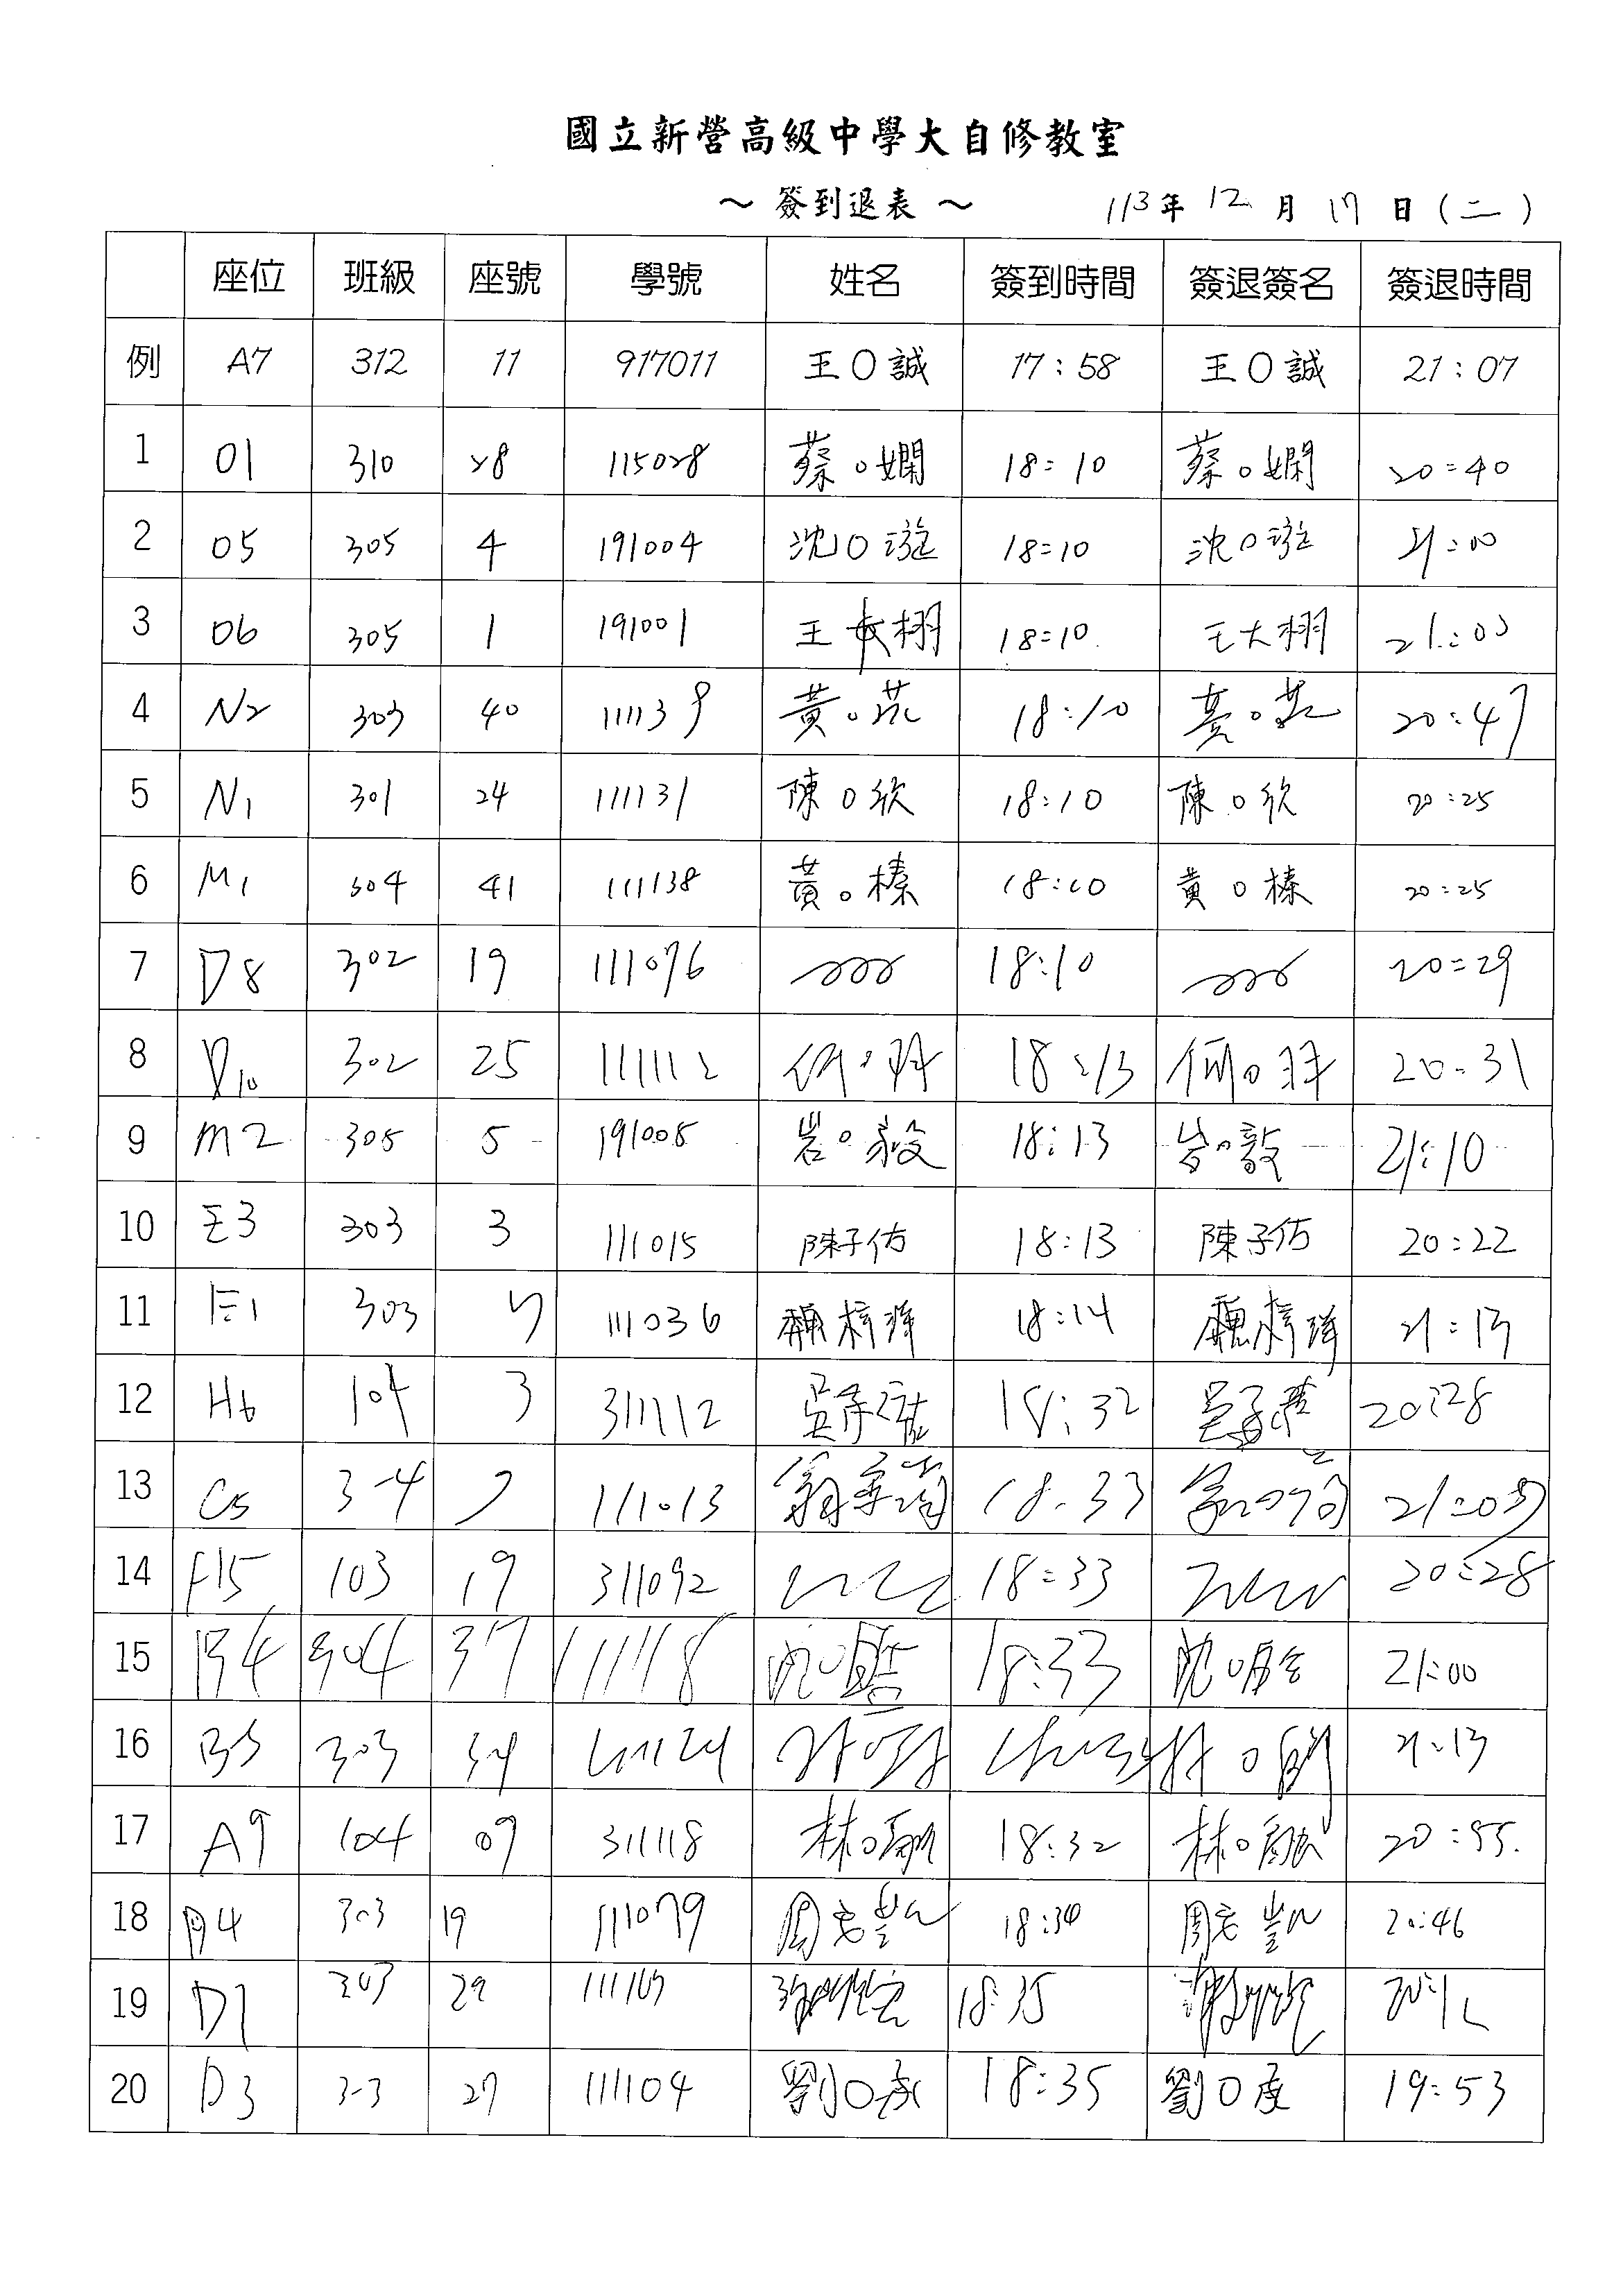 國立新營高級中學大自修教室
～ 簽到退表 ～ 113年 12 月 17 日 (二)
座位 班級 座號 學號 姓名 簽到時間 簽退簽名 簽退時間
例 A7 312 11 917011 王O誠 17:58 王O誠 21:07
1 01 310 28 115028 蔡O嫻 18:10 蔡O嫻 20:40
2 05 305 4 191004 沈O漩 18:10 沈O漩 21:00
3 06 305 1 191001 王 栩 18:10 王大栩 21:00
4 N2 303 40 111139 黃O 18:10 黃O 20:47
5 N1 301 24 111131 陳O欣 18:10 陳O欣 20:25
6 M1 304 41 111138 黃O榛 18:10 黃O榛 20:25
7 D8 302 19 111076 18:10 20:29
8 D10 302 25 111112 18:13 20:31
9 M2 305 5 191005 岩O毅 18:13 岩O毅 21:10
10 E3 303 3 111015 陳子佑 18:13 陳子佑 20:22
11 E1 303 7 111036 魏梓 18:14 魏梓 21:13
12 H6 104 3 311112 吳 18:32 吳 20:28
13 C5 3-4 7 111013 翁 18:33 21:05
14 F15 103 19 311092 18:33 20:28
15 B4 304 37 111118 沈O 18:33 沈O 21:00
16 B5 303 34 21:13
17 A9 104 09 311118 林O 18:32 林O 20:55.
18 A4 303 19 111079 周 凱 18:34 周 凱 20:46
19 D1 303 29 18:35
20 D3 3-3 27 111104 劉O 18:35 劉O 19:53